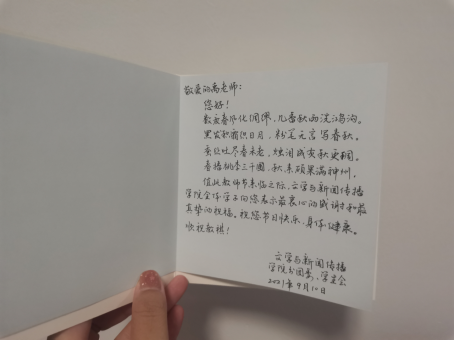 敬爱的禹老师：
您好！
数度春风化绸缪，几番秋雨洗鸿沟。
黑发积霜织日月，粉笔无言写春秋。
蚕丝吐尽春未老，烛泪成灰秋更稠。
春播桃李三千圃，秋来硕果满神州。
值此教师节来临之际，文学与新闻传播
学院全体学子向您表示最衷心的感谢和最
真挚的祝福。祝您节日快乐，身体健康。
顺祝教祺！
文学与新闻传播
学院分团委、学生会
2021年9月10日